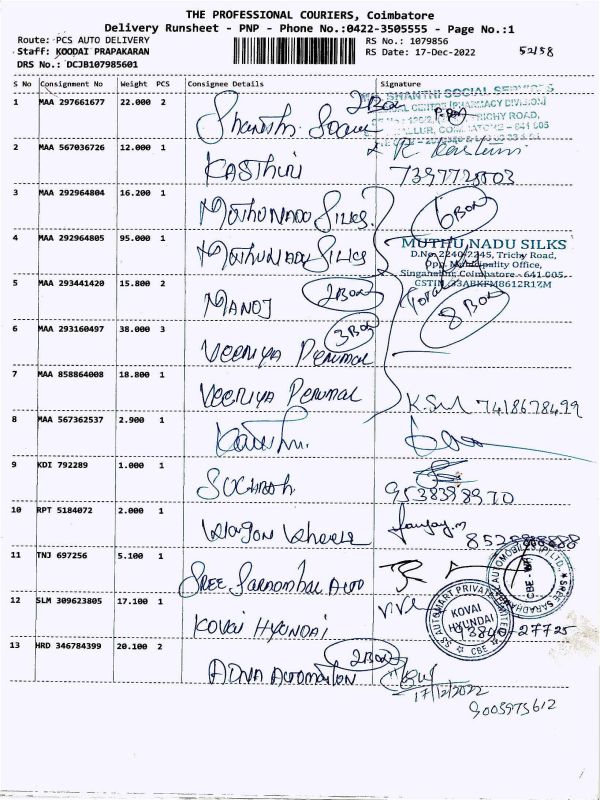 THE PROFESSIONAL COURIERS, Coimbatore
Delivery Runsheet - PNP - Phone No.:0422-3505555 - Page No.:1
Route: PCS AUTO DELIVERY RS No.: 1079856
Staff: KOODAI PRAPAKARAN RS Date: 17-Dec-2022 52/58
DRS No.: DCJB107985601
S No Consignment No Weight PCS Consignee Details Signature
1 MAA 297661677 22.000 2 Shanthi 2 Box
SHANTHI SOCIAL SERVICES
(PHARMACY DIVISION)
TRICHY ROAD,
- 641 005
2 MAA 567036726 12.000 1 KASTHURI
7397725503
3 MAA 292964804 16.200 1 MUTHUNADU SILKS 6 Box
4 MAA 292964805 95.000 1 MUTHUNADU SILKS
MUTHU NADU SILKS
D.No. 2240/2245, Trichy Road,
Opp. Municipality Office,
Singanallur, Coimbatore - 641 005.
GSTIN :33ABKFM8612R1ZM
5 MAA 293441420 15.800 2 MANOJ 2 Box Total 8 Box
6 MAA 293160497 38.000 3 VEERIYA PERUMAL 3 Box
7 MAA 858864008 18.800 1 VEERIYA PERUMAL K.SM 7418678499
8 MAA 567362537 2.900 1
9 KDI 792289 1.000 1 9538398970
10 RPT 5184072 2.000 1 Wagon Wheels
11 TNJ 697256 5.100 1 SREE SARADHAMBAL AUTO
AUTOMOBILES (P) LTD. SREE SARADHA CBE
12 SLM 309623805 17.100 1 KOVAI HYUNDAI
SS AUTOMART PRIVATE LIMITED KOVAI HYUNDAI CBE
93840-27725
13 HRD 346784399 20.100 2 ADNA AUTOMATION 2 Box
17/12/2022
9005975612